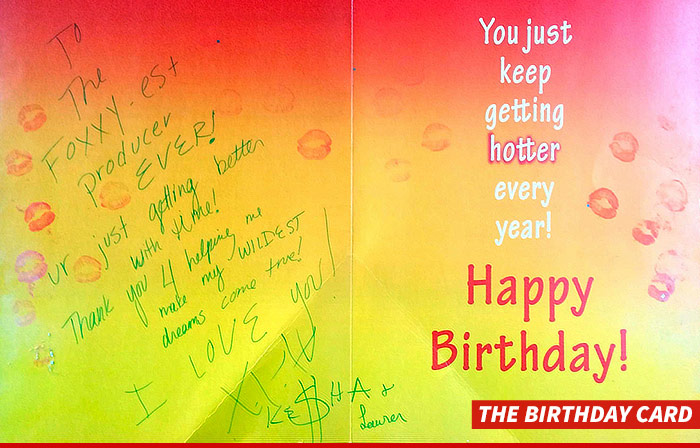 To
The
Foxxy-est
producer
EVER!
ur just getting better
with time!
Thank you 4 helping me
make my WILDEST
dreams come true!
I LOVE you!
KE$HA &
Lauren
You just
keep
getting
hotter
every
year!
Happy
Birthday!
THE BIRTHDAY CARD